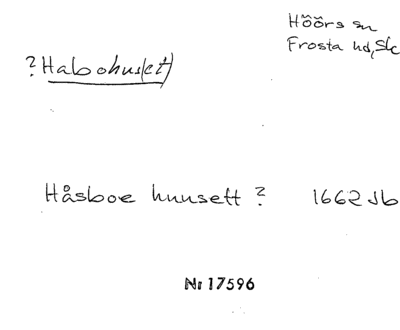 Höörs sn
Frosta hd, Sk
? Habohus(et)
Håsboe huusett ? 1662 Jb
Nr 17596